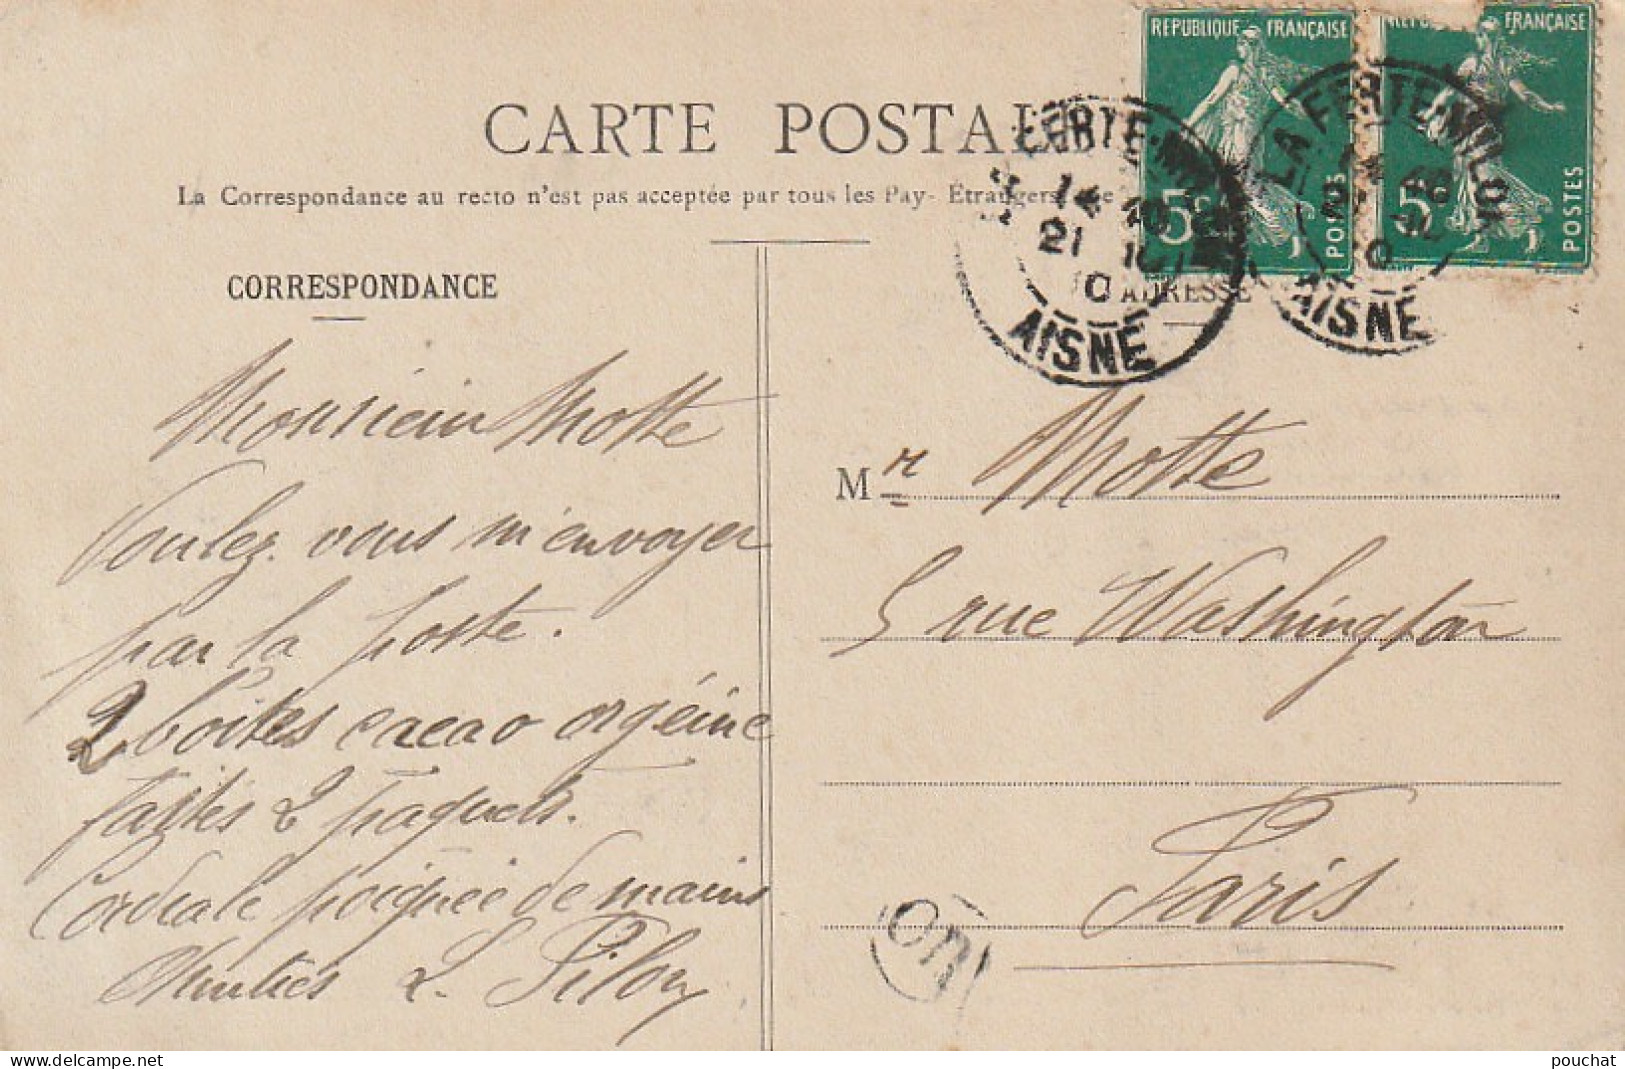 RÉPUBLIQUE FRANÇAISE
FRANÇAISE
5c POSTES
5c POSTES
CARTE POSTALE
LA FERTE-MILON
14 40
21 10
10
AISNE
La Correspondance au recto n'est pas acceptée par tous les Pays Étrangers
CORRESPONDANCE
ADRESSE
Monsieur Motte
Voulez vous m'envoyer
par la poste.
2 boîtes cacao orgéine
faites 2 paquets.
Cordiale poignée de mains
L. Pilon
Mr Motte
5 rue Washington
Paris
pouchat